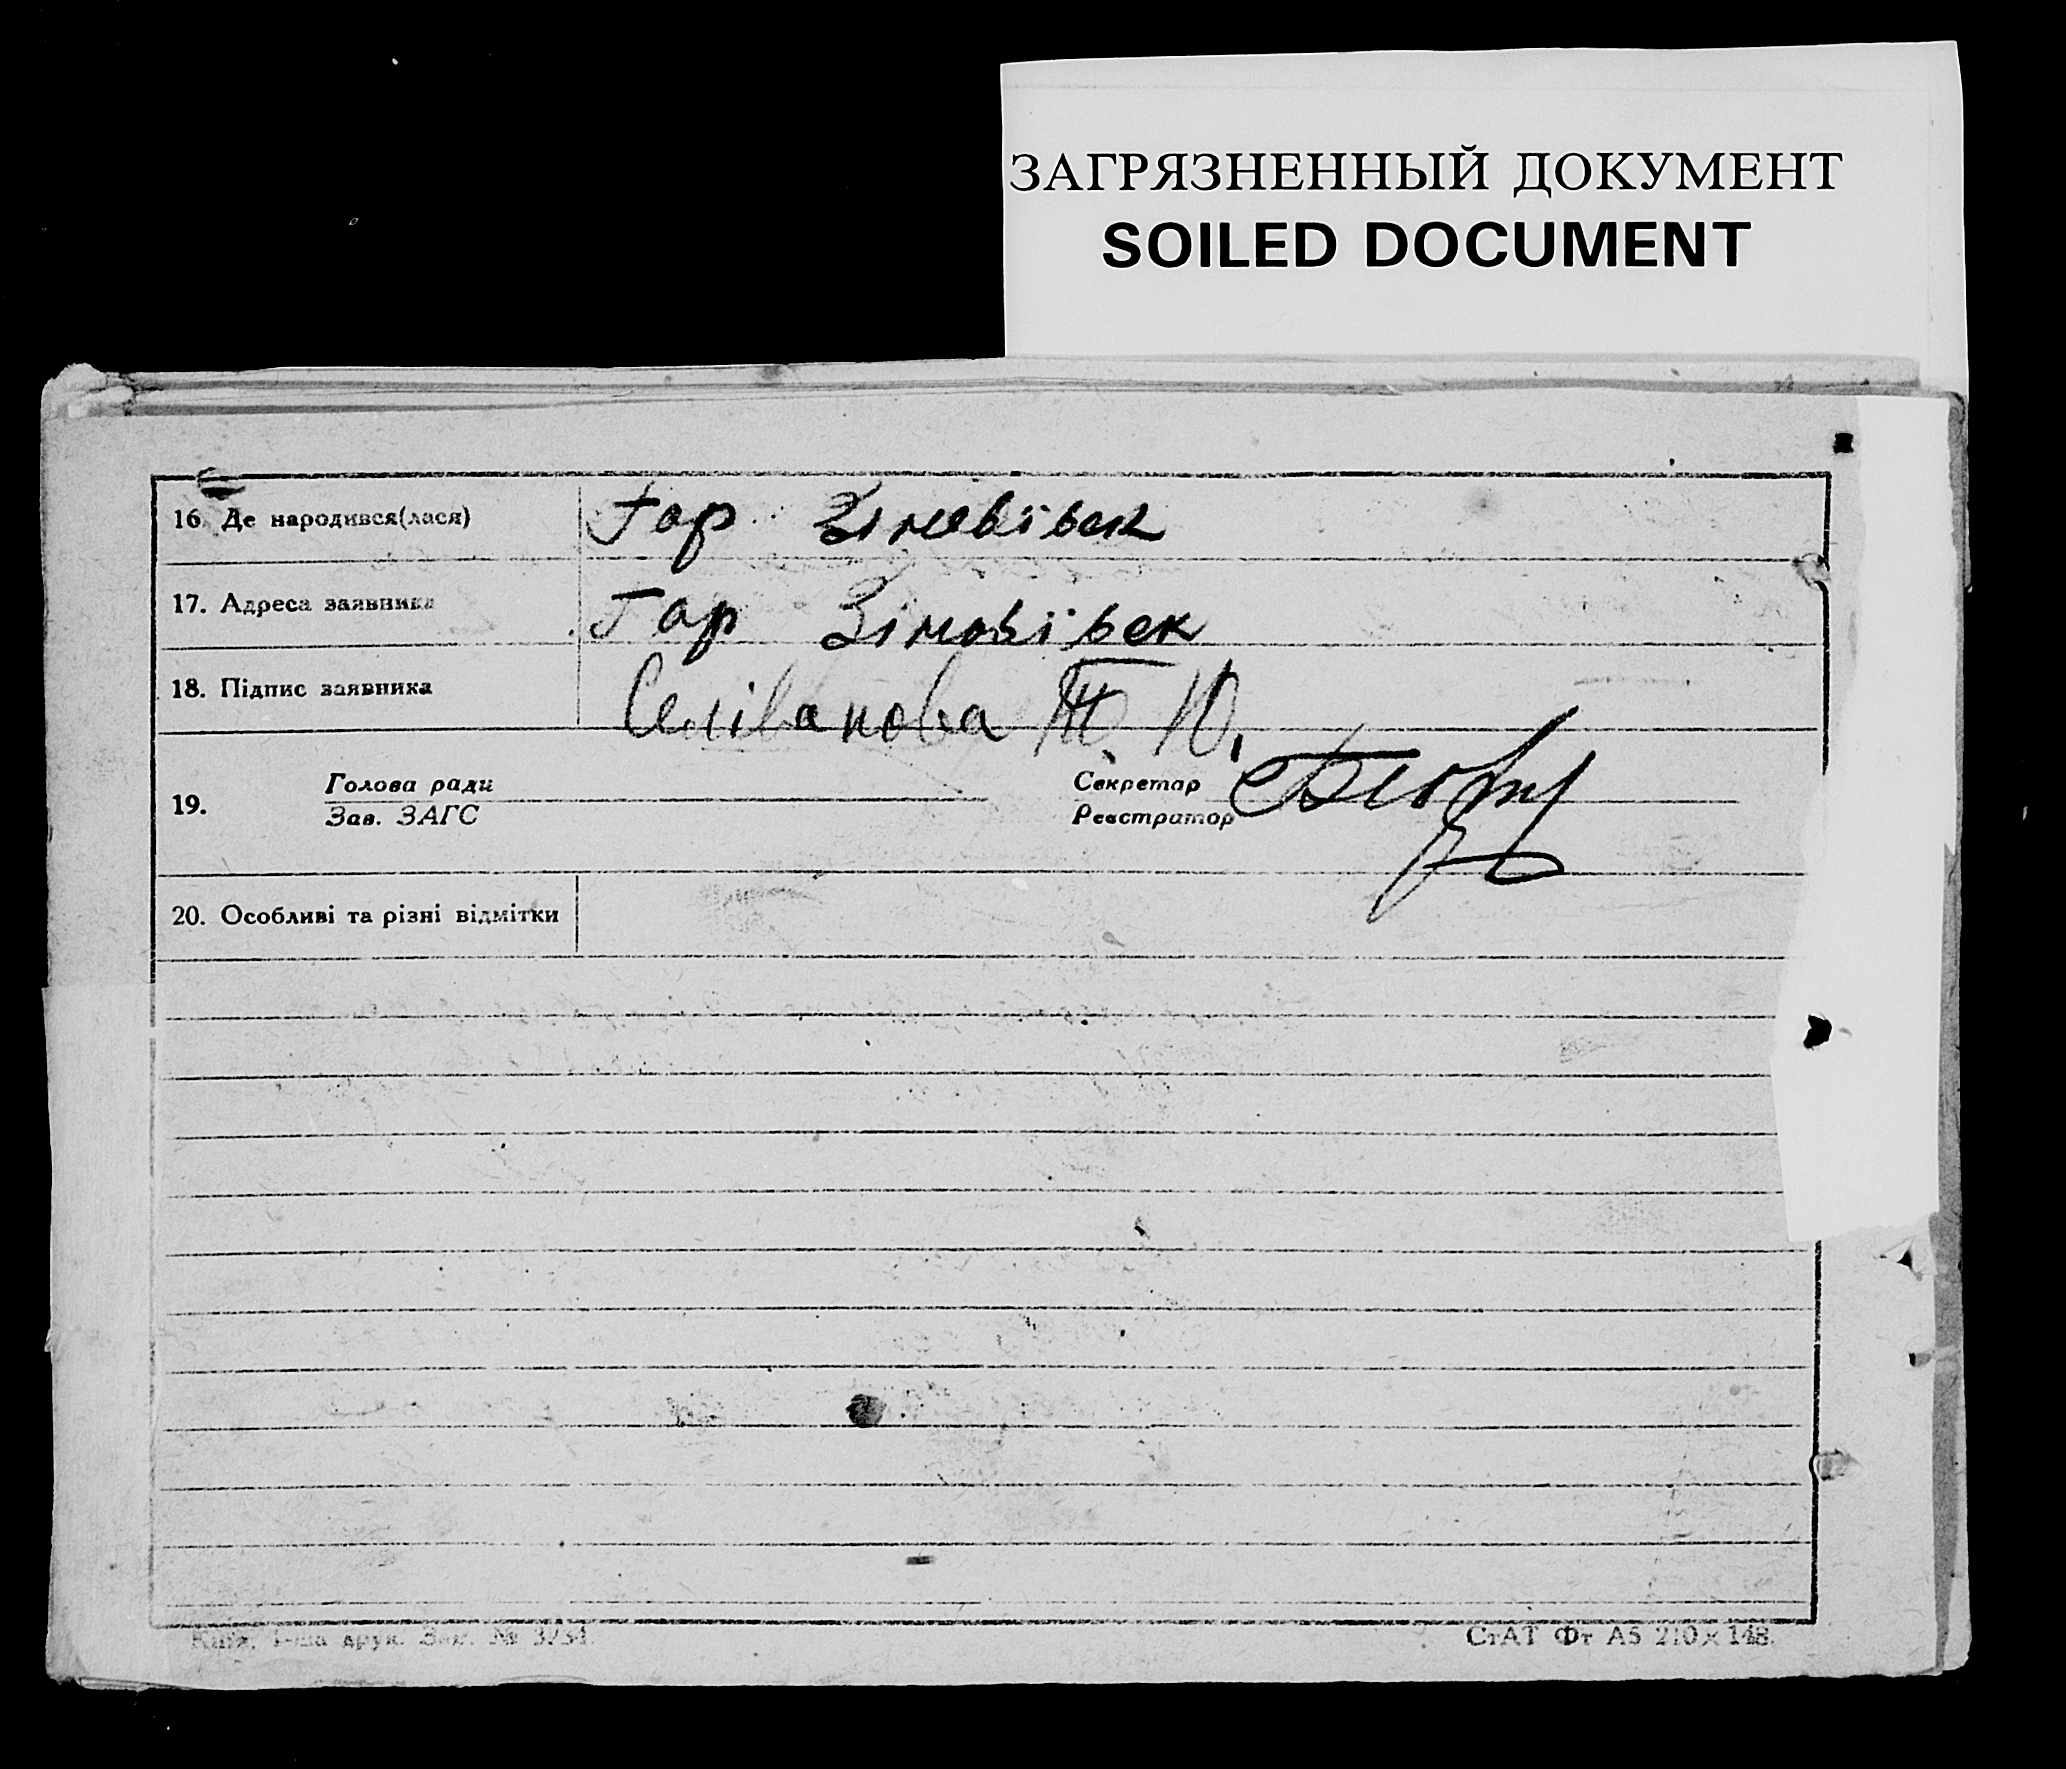 ЗАГРЯЗНЕННЫЙ ДОКУМЕНТ
SOILED DOCUMENT
16. Де народився(лася) Гор Зімовівек
17. Адреса заявника Гор Зімовівек
18. Підпис заявника Селіванова Т. Ю.
19. Голова ради
Зав. ЗАГС
Секретар
Реєстратор
20. Особливі та різні відмітки
Київ, 1-ша друк. Зам. №
СтАТ Фт А5 210×148.